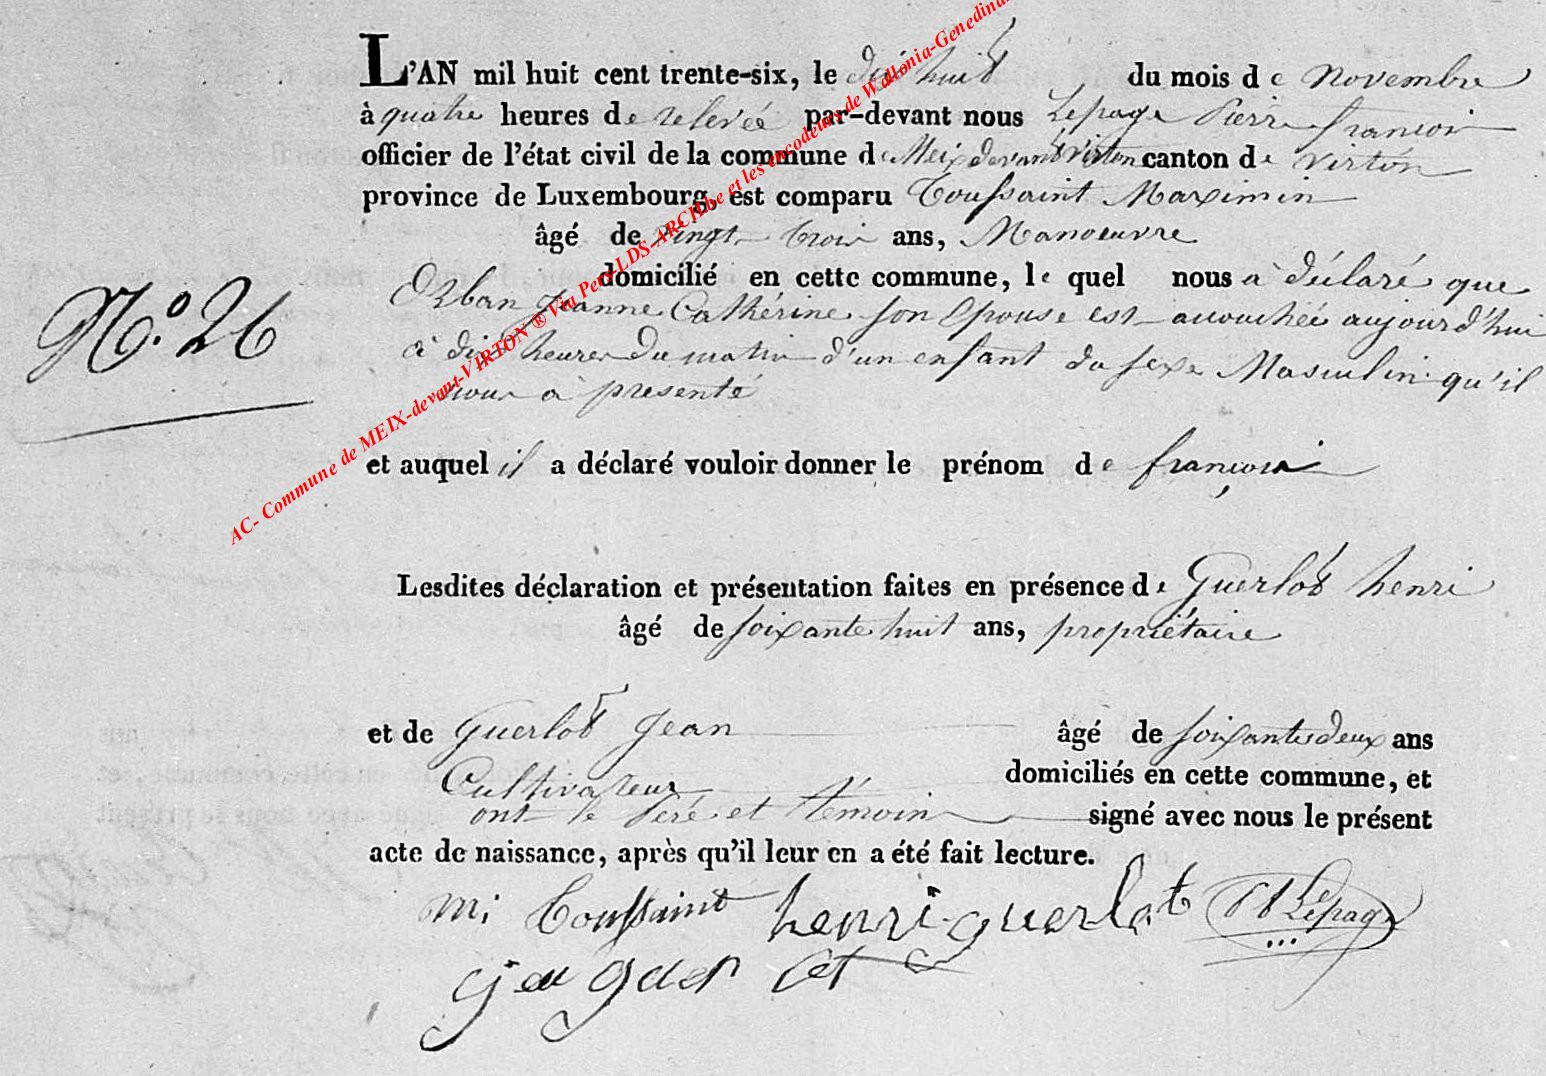 L'AN mil huit cent trente-six, le dix huit du mois de Novembre
à quatre heures de relevée par-devant nous Lepage Pierre françois
officier de l'état civil de la commune de Meix devant Virton canton de virton
province de Luxembourg, est comparu Toussaint Maximin
âgé de vingt trois ans, Manoeuvre
domicilié en cette commune, le quel nous a déclaré que
Orban Jeanne Cathérine son Epouse est accouchée aujourd'hui
N.o 26
à dix heures du matin d'un enfant du sexe Masculin qu'il
nous a presenté
et auquel il a déclaré vouloir donner le prénom de françois
Lesdites déclaration et présentation faites en présence de Guerlot henri
âgé de soixante huit ans, propriétaire
et de Guerlot Jean âgé de soixante deux ans
Cultivateur domiciliés en cette commune, et
ont le Peré et témoin signé avec nous le présent
acte de naissance, après qu'il leur en a été fait lecture.
mi Toussaint henri guerlot Lepage
AC- Commune de MEIX-devant-VIRTON ® Via Pers-LDS-ARCH.be et les encodeurs de Wallonia-Genedinar